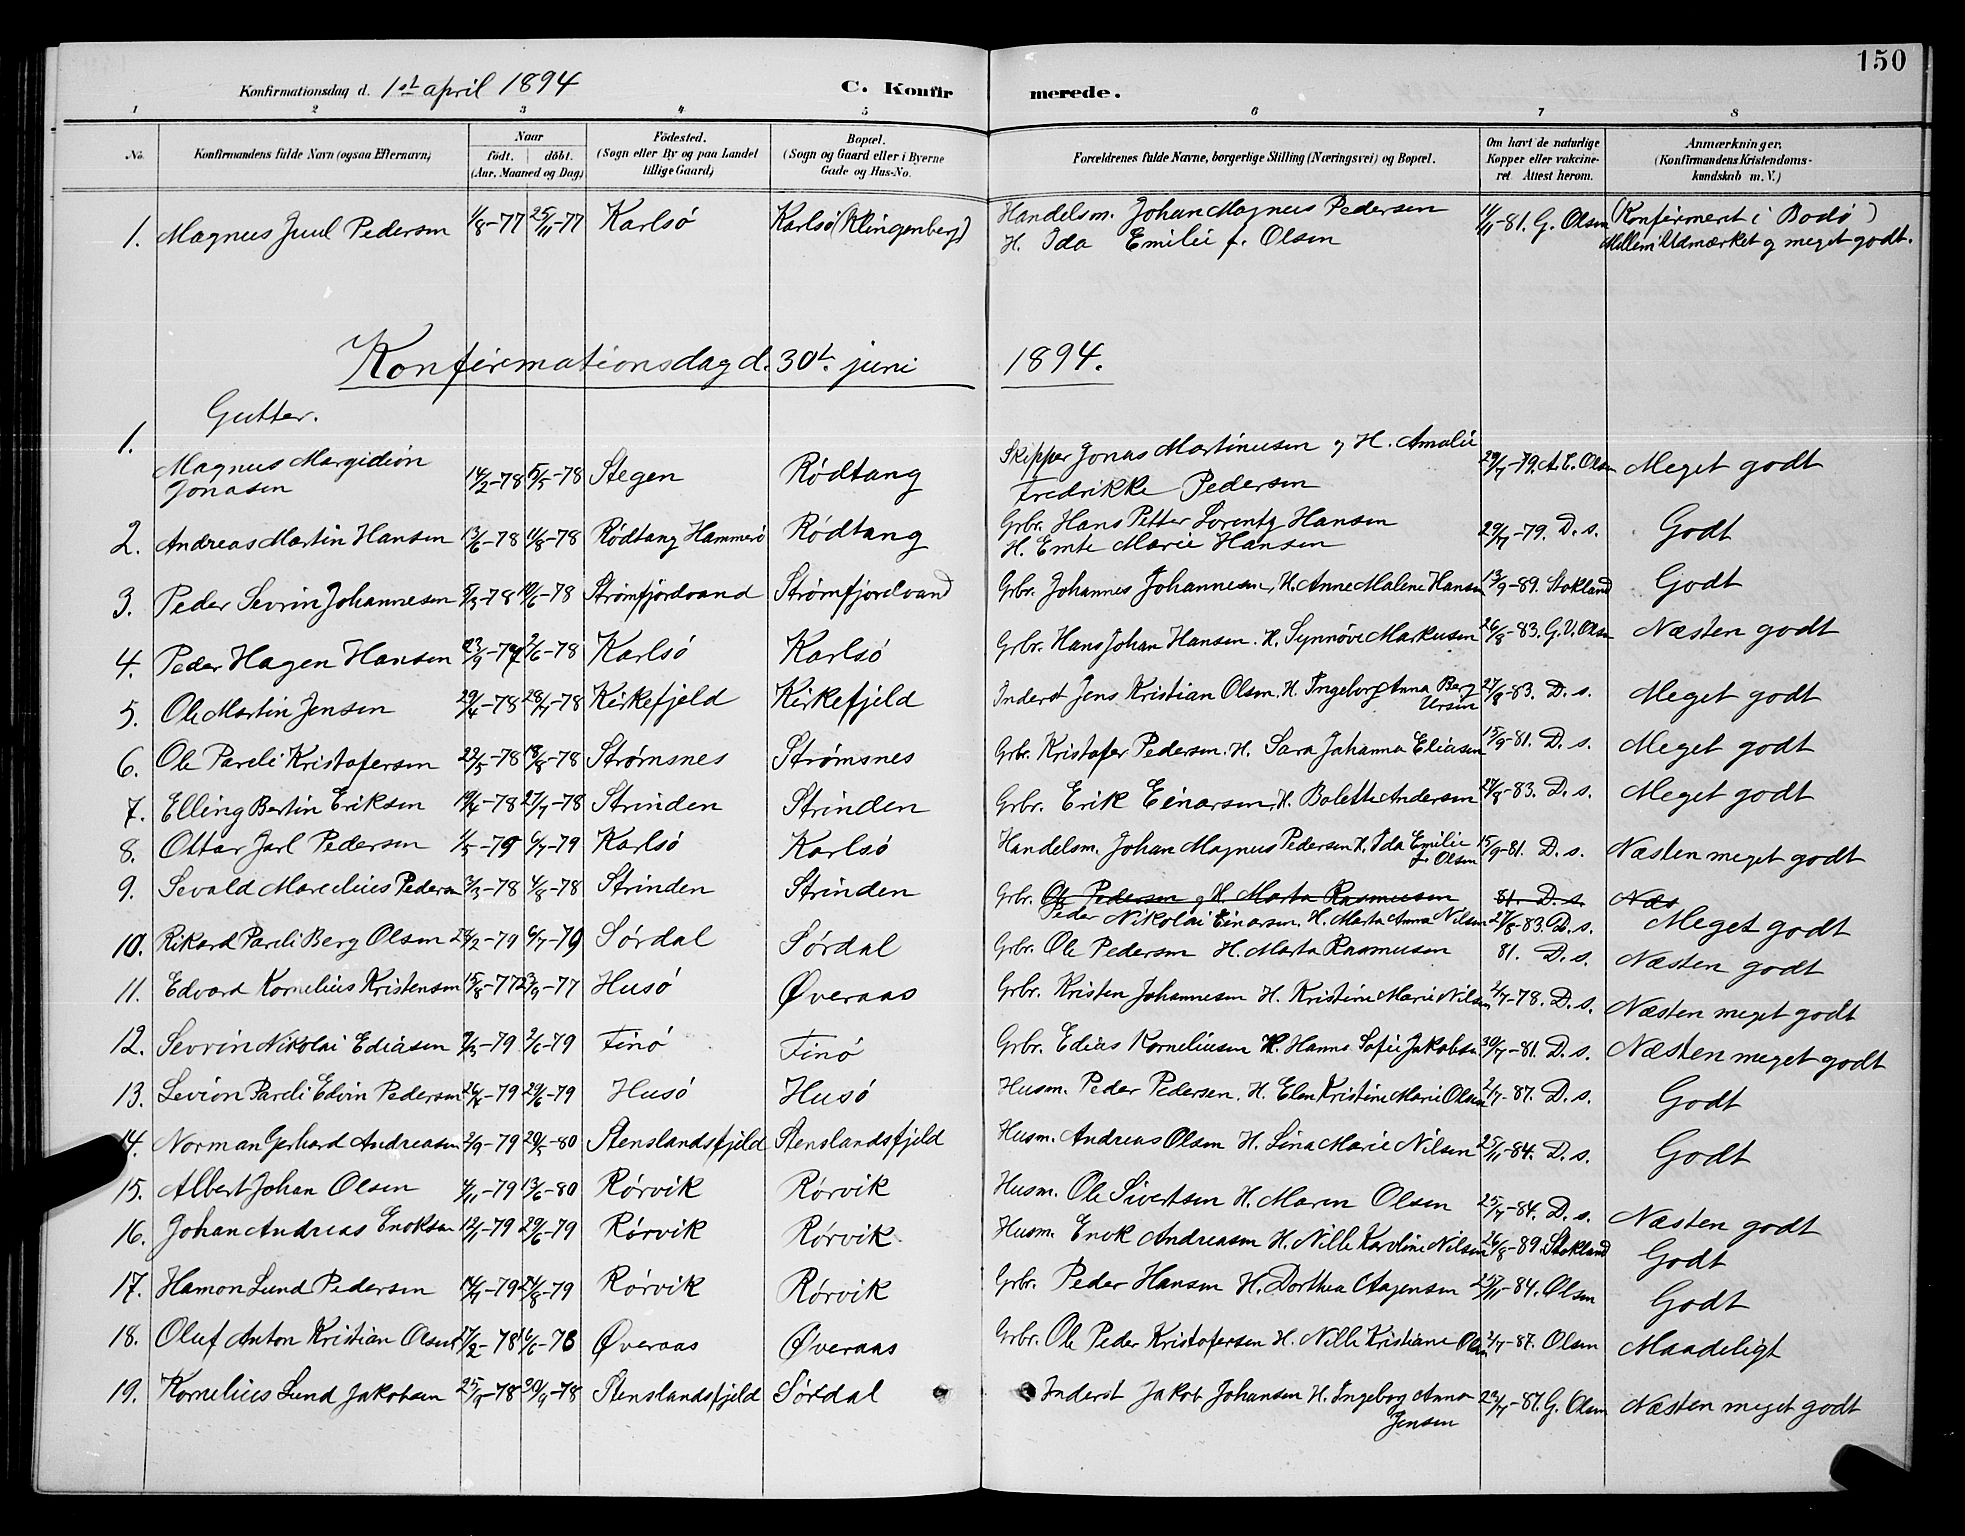 150
Konfirmationsdag d. 1st april 1894 C. Konfirmerede.
1 2 3 4 5 6 7 8
No. Konfirmandens fulde Navn (ogsaa Efternavn) Naar født. døbt. (Aar, Maaned og Dag) Fødested. (Sogn eller By og paa Landet tillige Gaard) Bopæl. (Sogn og Gaard eller i Byerne Gade og Hus-No. Forældrenes fulde Navne, borgerlige Stilling (Næringsvei) og Bopæl. Om havt de naturlige Kopper eller vakcineret Attest herom. Anmærkninger. (Konfirmandens Kristendomskundskab m. V.)
1. Magnus Juul Pedersen 1/8-77 25/11-77 Karlsö Karlsö (Klingenberg) Handelsm. Johan Magnus Pedersen H. Ida Emilie f. Olsen 11/11-81. G. Olsen (Konfirmeret i Bodö) Mellem Udmærket og meget godt.
Konfirmationsdag d. 30t juni 1894.
Gutter.
1. Magnus Margidion Jonasen 14/2-78 5/5-78 Stegen Rödtang Skipper Jonas Martinusen og H. Amalie Fredrikke Pedersen 29/7-79. A. E. Olsen Meget godt
2. Andreas Martin Hansen 13/6-78 11/8-78 Rödtang Hammerö Rödtang Grbr. Hans Petter Lorentz Hansen H. Emte Marie Hansen 29/7-79. D. s. Godt
3. Peder Sevrin Johannesen 5/3-78 10/6-78 Strömfjordvand Strömfjordvand Grbr. Johannes Johannesen, H. Anne Malene Hansen 13/9-89. Stokland Godt
4. Peder Hagen Hansen 23/9-77 2/6-78 Karlsö Karlsö Grbr. Hans Johan Hansen. H. Synnöve Markusen 26/8-83. G. V. Olsen Næsten godt
5. Ole Martin Jensen 29/4-78 28/7-78 Kirkefjeld Kirkefjeld Inderst Jens Kristian Olsen. H. Ingeborg Anna Berg Ursin 27/8-83. D. s. Meget godt
6. Ole Pareli Kristofersen 22/5-78 18/8-78 Strømsnes Strømsnes Grbr. Kristofer Pedersen. H. Sara Johanna Eliasen 15/9-81. D. s. Meget godt
7. Elling Bertin Eriksen 19/4-78 27/7-78 Strinden Strinden Grbr. Erik Einarsen, H. Bolette Andersen 27/8-83. D. s. Meget godt
8. Ottar Jarl Pedersen 1/5-79 6/7-79 Karlsö Karlsö Handelsm. Johan Magnus Pedersen H. Ida Emilie f. Olsen 15/9-81. D. s. Næsten meget godt
9. Sevald Marcelius Pedersen 3/3-78 4/8-78 Strinden Strinden Grbr. Ole Pedersen og H. Marta Rasmusen 81. D. s. Næs
Peder Nikolai Einarsen. H. Marta Anna Nilsen 27/8-83. D. s. Meget godt
10. Rikard Pareli Berg Olsen 28/2-79 6/7-79 Sördal Sördal Grbr. Ole Pedersen H. Marta Rasmusen 81. D. s. Næsten godt
11. Edvard Kornelius Kristensen 15/8-77 23/9-77 Husö Øveraas Grbr. Kristen Johannesen H. Kristine Marie Nilsen 2/7-78. D. s. Næsten meget godt
12. Sevrin Nikolai Ediasen 9/3-79 2/6-79 Finö Finö Grbr. Edias Korneliusen H. Hanna Sofie Jakobsen 30/7-81. D. s. Næsten meget godt
13. Levion Pareli Edvin Pedersen 26/4-79 29/6-79 Husö Husö Husm. Peder Pedersen. H. Elen Kristine Marie Olsen 2/7-87. D. s. Godt
14. Norman Gerhard Andreasen 2/9-79 29/5-80 Stenslandsfjeld Stenslandsfjeld Husm. Andreas Olsen H. Lina Marie Nilsen 25/11-84. D. s. Godt
15. Albert Johan Olsen 4/11-79 13/6-80 Rörvik Rörvik Husm. Ole Sivertsen H. Maren Olsen 25/7-84. D. s. Næsten godt
16. Johan Andreas Enoksen 12/1-79 29/6-79 Rörvik Rörvik Husm. Enok Andreasen H. Nille Karoline Nilsen 26/8-89. Stokland Godt
17. Hamon Lund Pedersen 14/7-79 24/8-79 Rörvik Rörvik Grbr. Peder Hansen H. Dorthea Aagensen 25/11-84. Olsen Godt
18. Oluf Anton Kristian Olsen 17/2-78 16/6-78 Øveraas Øveraas Grbr. Ole Peder Kristofersen H. Nille Kristiane Olsen 2/7-87. Olsen Maadeligt
19. Kornelius Lund Jakobsen 25/7-78 30/9-78 Stenslandsfjeld Sördal Inderst Jakob Johansen H. Ingeborg Anna Jensen 23/7-87. G. Olsen Næsten meget godt